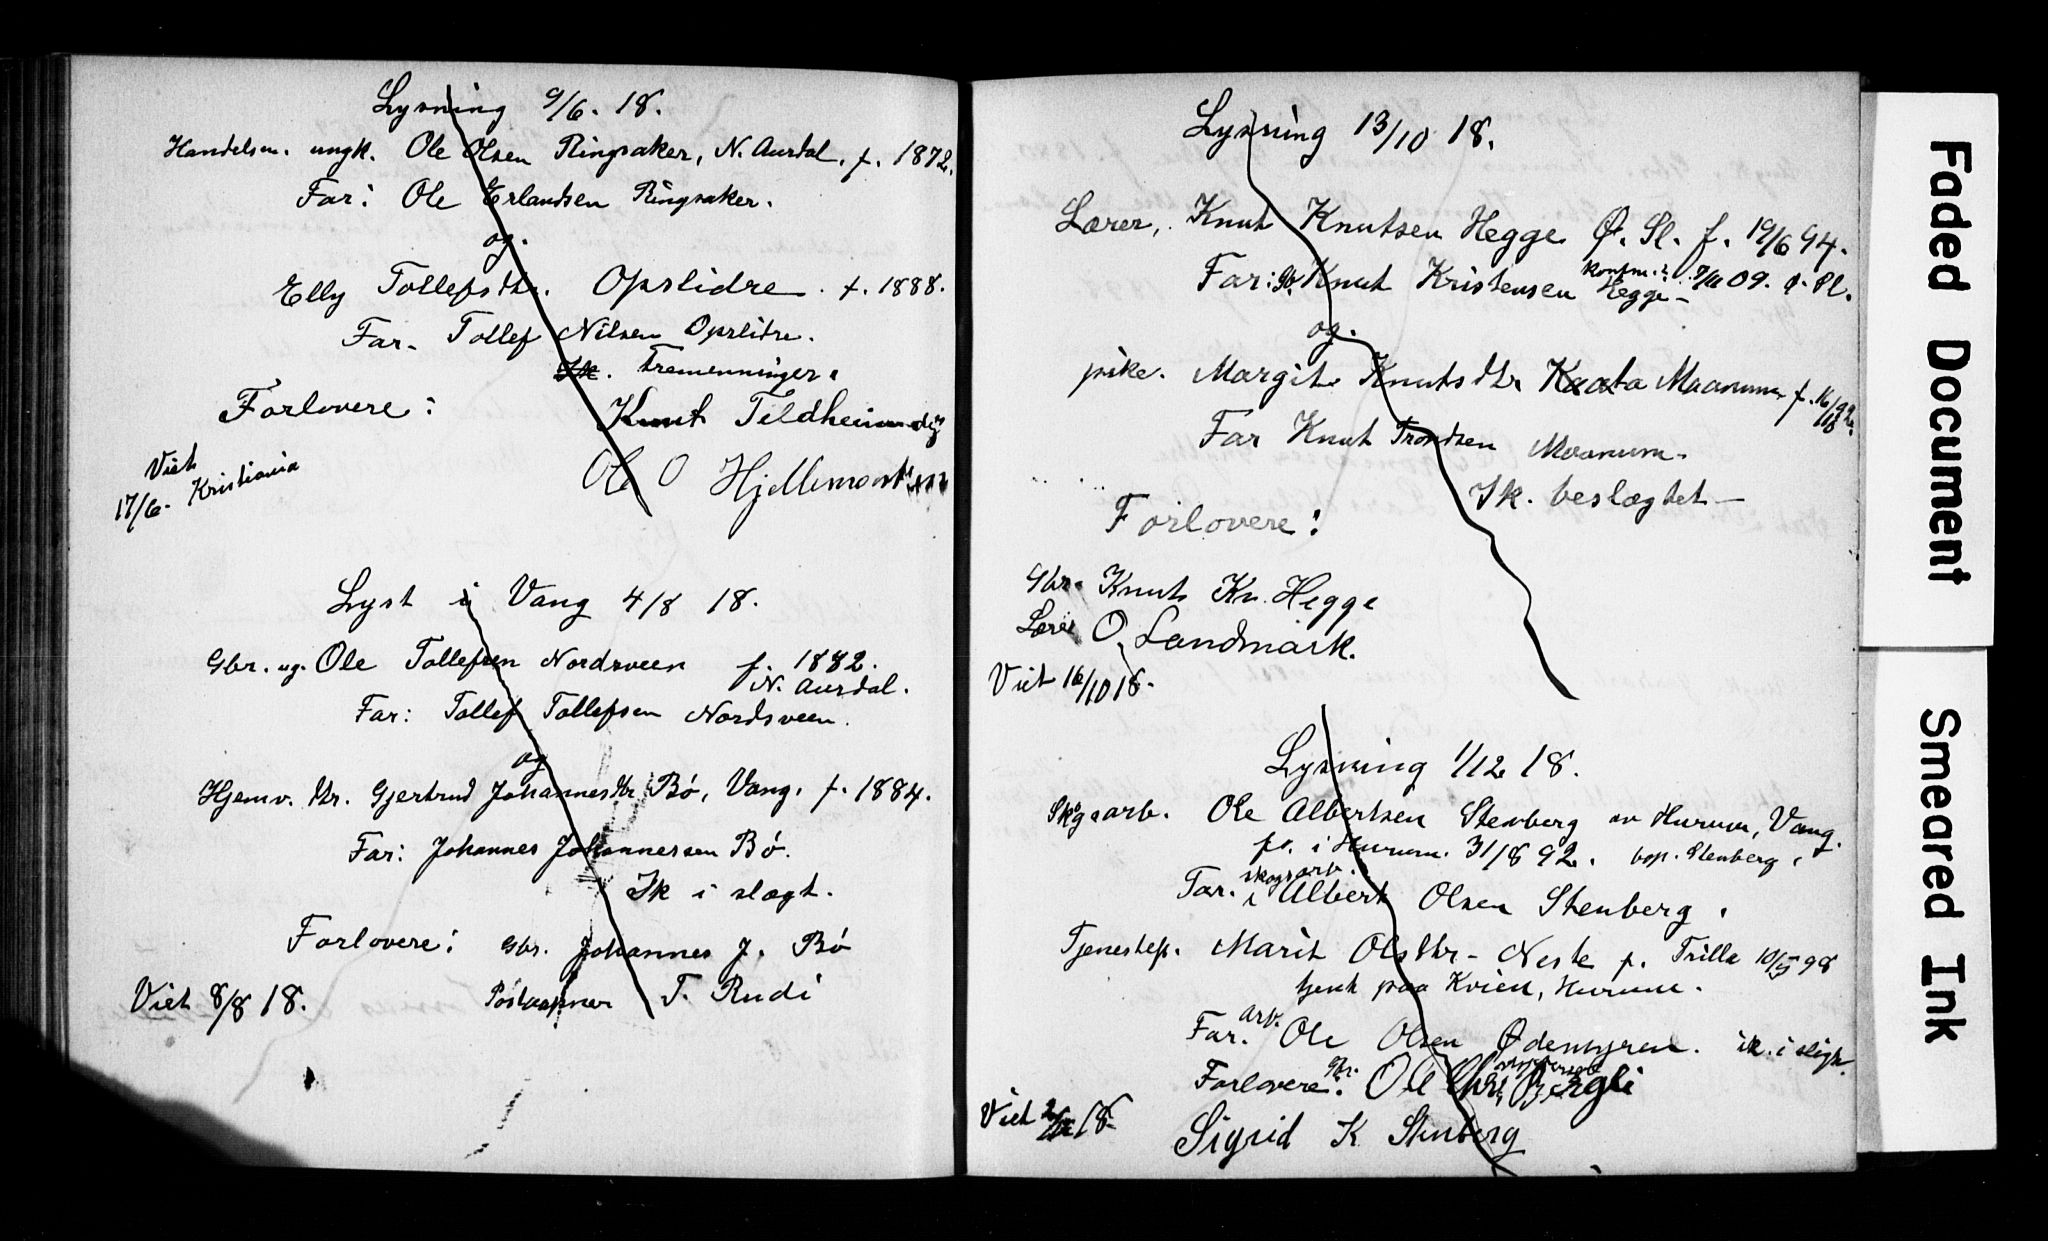 Lysning 9/6. 18.
Handelsm. ungk. Ole Olsen Ringsaker, N. Aurdal. f. 1872.
Far: Ole Erlandsen Ringsaker.
og.
Elly Tollefsdtr. Opslidre. f. 1888.
Far. Tollef Nilsen Opslidre.
Ik. Tremenninger.
Forlovere:
Knut Tildheim
Viet
17/6. Kristiania
Ole O Hjelle
Lyst i Vang 4/8 18.
Gbr. ug. Ole Tollefsen Nordsveen f. 1882.
N. Aurdal.
Far: Tollef Tollefsen Nordsveen.
og
Hjemv. dtr. Gjertrud Johannesdtr Bø, Vang. f. 1884.
Far: Johannes Johannessen Bø.
Ik i slægt.
Forlovere: Gbr. Johannes J. Bø
Viet 8/8 18. Postaapner T. Rudi
Lysning 13/10 18.
Lærer, Knut Knutsen Hegge Ø. Sl. f. 19/6 94.
konfm. 09. Ø. Sl.
Far: Gb. Knut Kristensen Hegge
og.
pike. Margit Knutsdtr Kaata Moanum f. 92.
Far Knut Trondsen Moanum.
Ik. beslægtet —
Forlovere:
Gbr. Knut Kn. Hegge
Lærer O. Landmark.
Viet 16/10 18.
Lysning 1/12 18.
Skogsarb. Ole Albertsen Stenberg av Hurum, Vang.
fø. i Hurum. 31/8 92. bop. Stenberg.
skogsarb.
Far. Albert Olsen Stenberg.
Tjenestep. Marit Olsdtr - Neste f. Trilla 10/5 98
tjent paa Kvien, Hurum.
arb.
Far. Ole Olsen Ødemyren. ik. i slegt.
Forlovere: Gbr. Ole Bergli
Viet 18
Sigrid K Stenberg
Faded Document
Smeared Ink